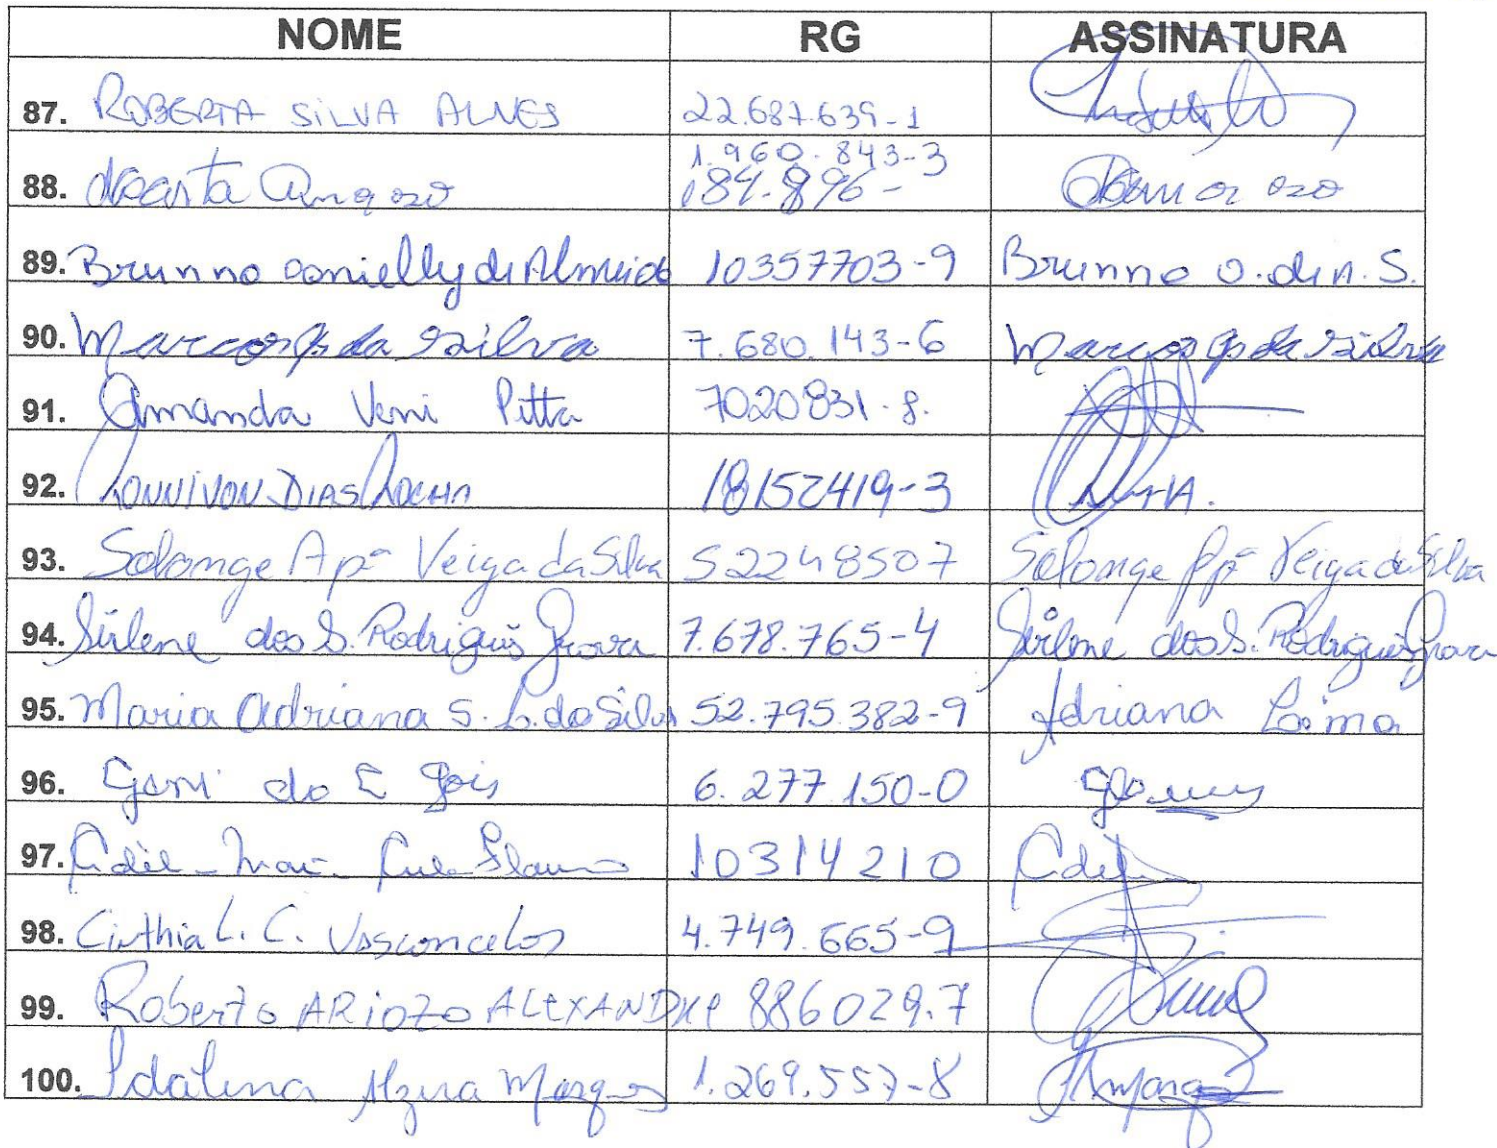 NOME RG ASSINATURA
87. ROBERTA SILVA ALVES 22.687.639-1
88. 1.960.843-3
184.896-
89. Brunno Danielly de Almeida 10357703-9 Brunno D. de A. S.
90. Marcos da Silva 7.680.143-6 Marcos da Silva
91. Amanda Veni Pitta 7020831-8.
92. DIAS ROCHA 18152419-3
93. Solange Apª Veiga da Silva 52248507 Solange Apª Veiga da Silva
94. Sirlene dos S. Rodrigues 7.678.765-4 Sirlene dos S. Rodrigues
95. Maria Adriana S. L. da Silva 52.795.382-9 Adriana Lima
96. do E Gois 6.277.150-0
97. 10314210
98. Cinthia L. C. Vasconcelos 4.749.665-9
99. Roberto ARIOZO ALEXANDRE 886029.7
100. Idalina Alzira Marques 1.269.557-8